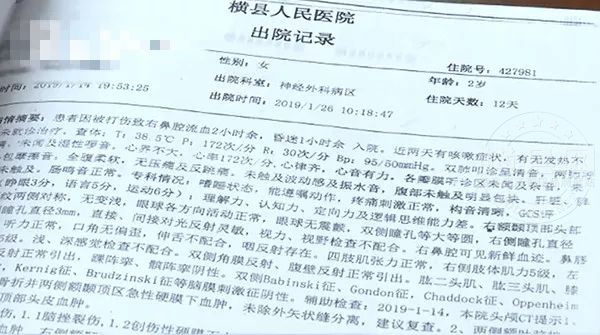 横县人民医院
出院记录
性别：女
住院号：427981
出院科室：神经外科病区
年龄：2岁
时间：2019/1/14 19:53:25
出院时间：2019/1/26 10:18:47
住院天数：12天
情摘要：患者因被打伤致右鼻腔流血2小时余，昏迷1小时余 入院。近两天有咳嗽症状，有无发热不
未就诊治疗。查体：T：38.5℃ P：172次/分 R：30次/分 Bp：95/50mmHg。双肺听诊呈清音，两肺呼
未闻及湿性啰音，心界不大，心率172次/分,心律齐，心音有力。各瓣膜听诊区未闻及杂音，未
包摩擦音。全腹柔软，无压痛及反跳痛。未触及波动感及振水音，腹部未触及明显包块。肝脏、脾
未触及。肠鸣音正常。专科情况：嗜睡状态，能遵嘱动作，疼痛刺激正常，构音清晰，GCS评
（睁眼3分，语言5分，运动6分）；理解力、认知力、定向力及逻辑思维能力差。右额颞顶部头部
纹两侧对称，无变浅，眼球各方向活动正常，眼球无震颤，双侧瞳孔等大等圆，右侧瞳孔直径
瞳孔直径3mm，直接、间接对光反射灵敏，视力、视野检查不配合。右鼻腔可见新鲜血迹。鼻唇
，听力正常，口角无偏歪，伸舌不配合，咽反射存在。四肢肌张力正常，右侧肢体肌力5级，左
5级。浅、深感觉检查不配合。双侧角膜反射、腹壁反射正常引出。肱二头肌、肱三头肌、膝
反射正常引出。踝阵挛、髌阵挛阴性。双侧Babinski征、Gondon征，Chaddock征、Oppenheim
，Kernig征、Brudzinski征等脑膜刺激征阴性。辅助检查：2019-1-14，本院头颅CT提示1.
骨折并两侧额颞顶区急性硬膜下血肿，未除外矢状缝分离，建议复查。2、两侧
顶部头皮血肿。
伤，1.1脑挫裂伤，1.2创伤性硬膜